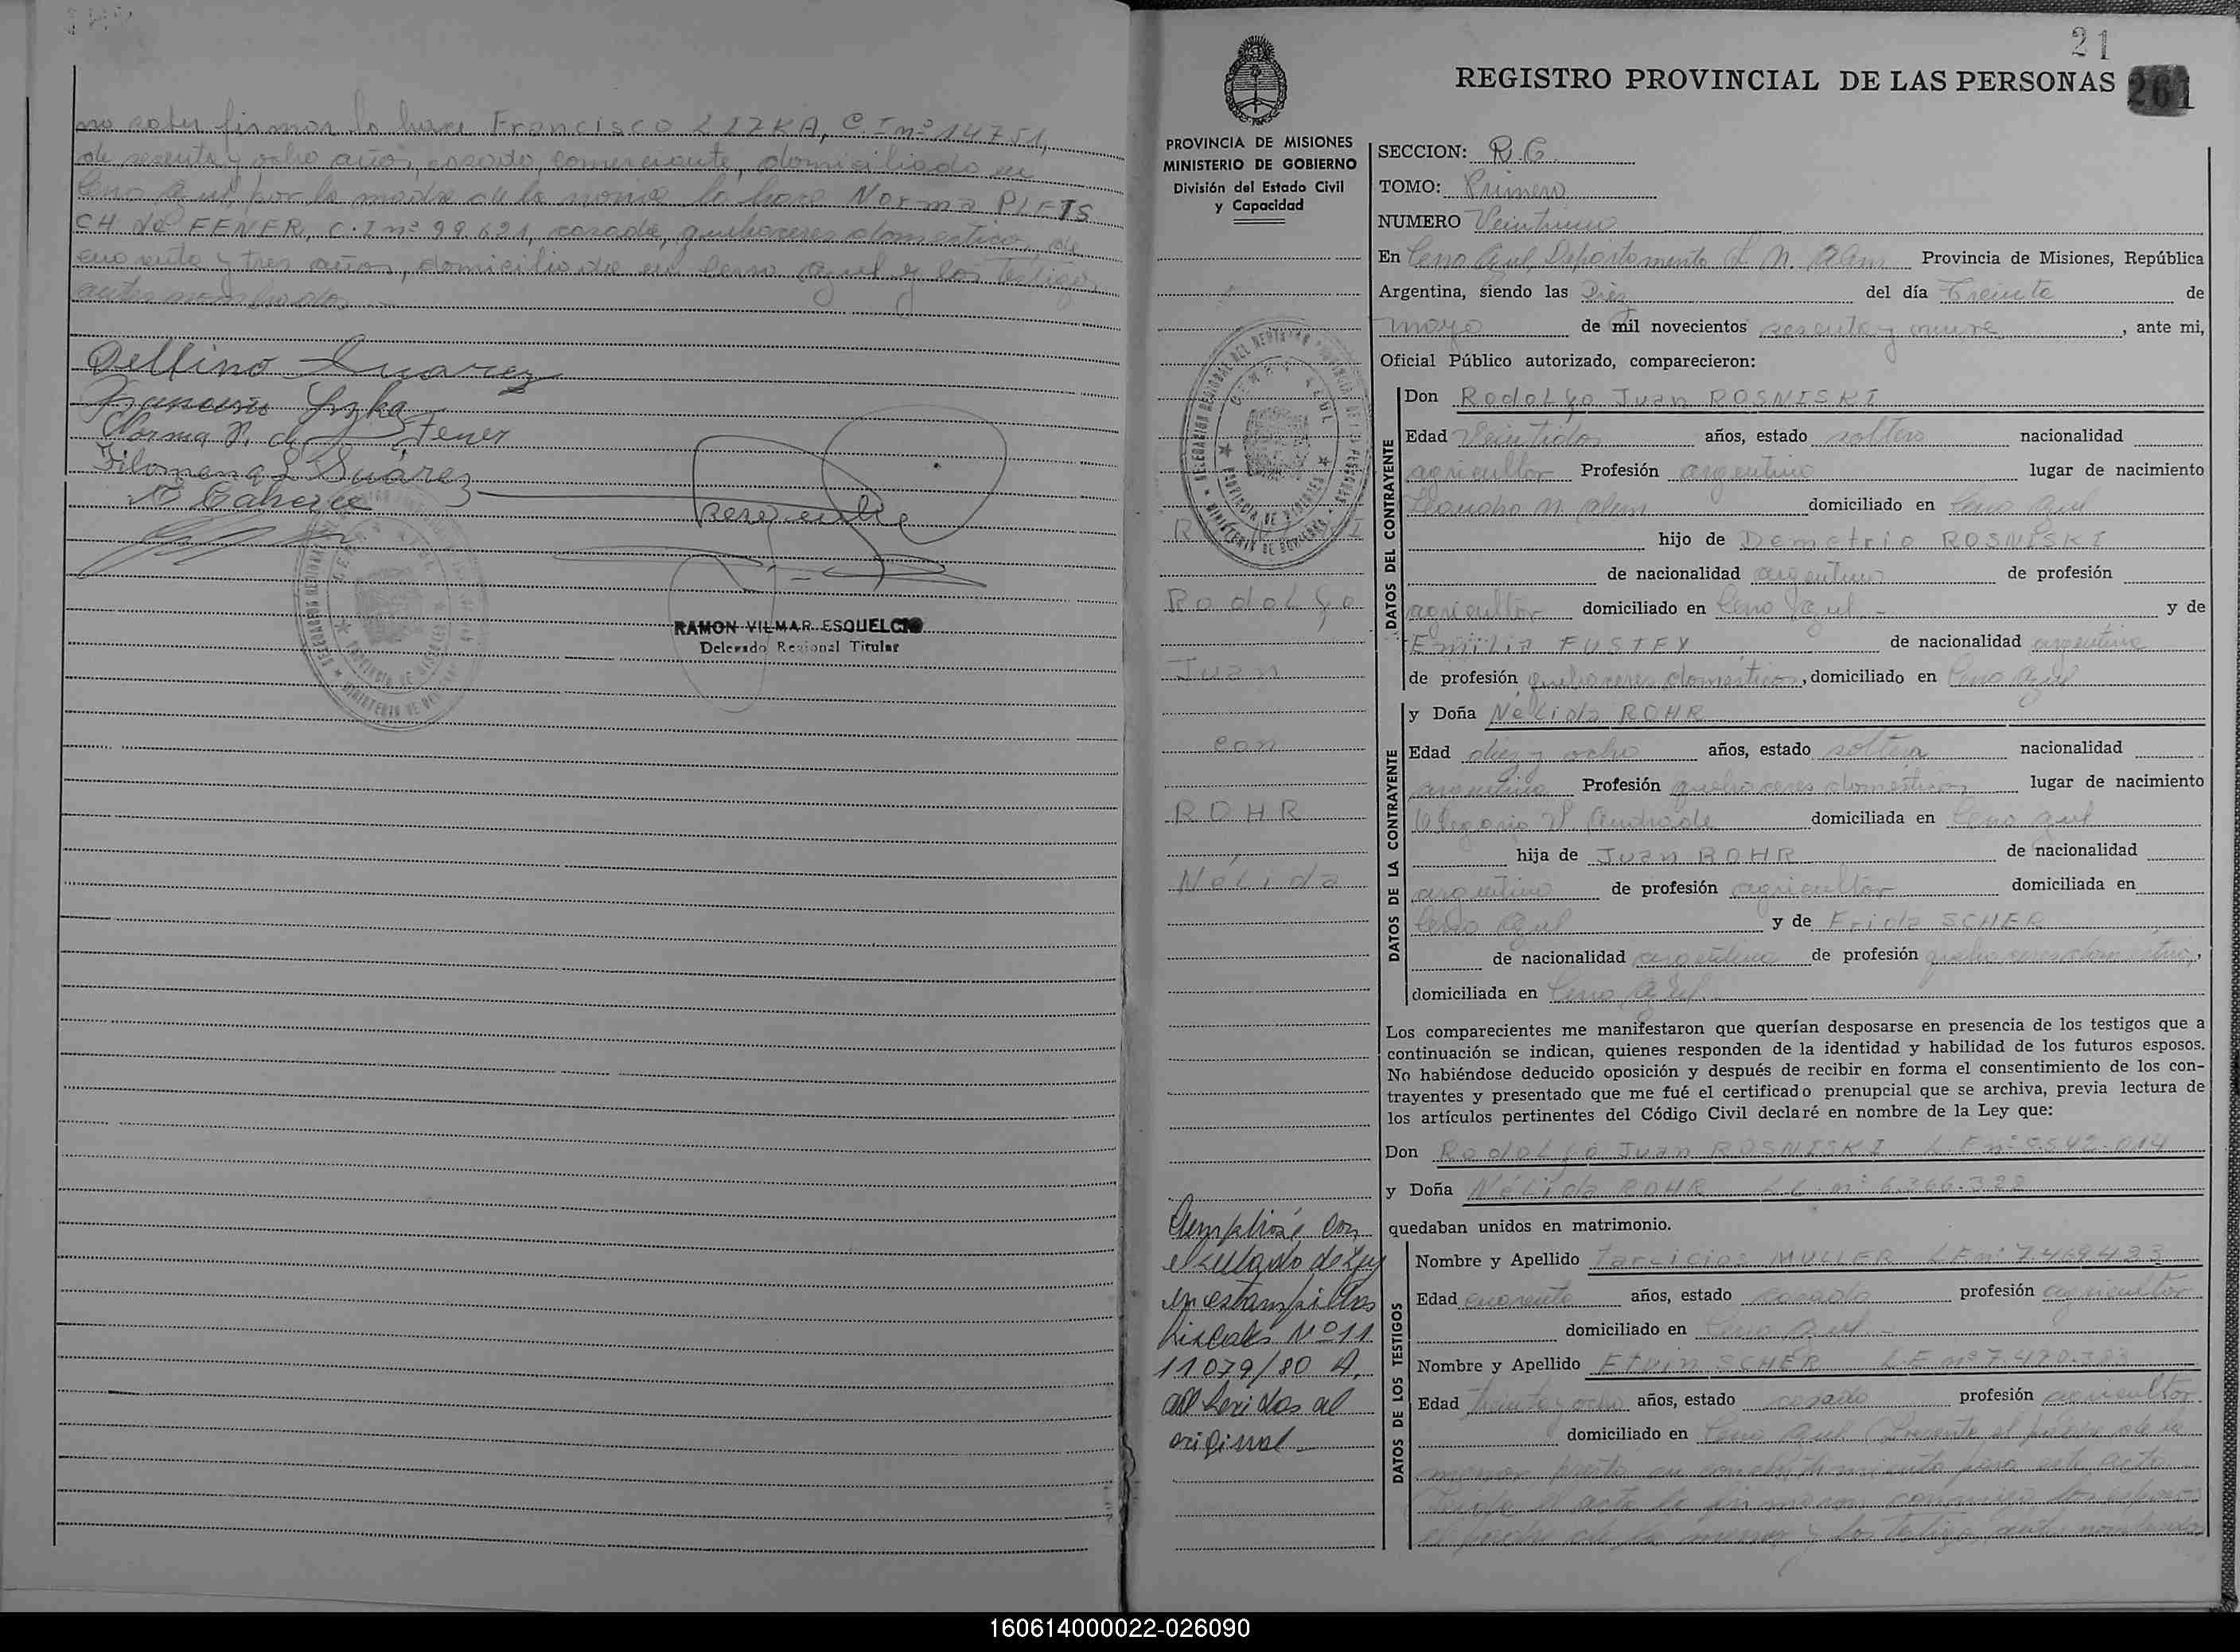 no saber firmar lo hace Francisco LIZKA, C. I nº 14751,
de sesenta y ocho años, casado, comerciante, domiciliado en
Cerro Azul, por la madre de la novia lo hace Norma PLETS
CH de FENER, C. I nº 99.621, casada, quehaceres domesticos, de
cuarenta y tres años, domiciliada en Cerro Azul y los testigos
antes nombrados
Delfino Suarez
Francisco Lyzka
Norma P. de Fener
Filomena L Suárez
RAMON VILMAR ESQUELCIO
Delegado Regional Titular
21
REGISTRO PROVINCIAL DE LAS PERSONAS 261
PROVINCIA DE MISIONES
MINISTERIO DE GOBIERNO
División del Estado Civil
y Capacidad
ROSNISKI
Rodolfo
Juan
con
ROHR
Nélida
Cumplióse con
el sellado de Ley
en estampillas
fiscales Nº 11
11079/80 A,
adheridas al
original
SECCION: R.C.
TOMO: Primero
NUMERO Veintiuno
En Cerro Azul, Departamento L. N. Alem Provincia de Misiones, República
Argentina, siendo las Diez del día Treinta de
mayo de mil novecientos sesenta y nueve, ante mi,
Oficial Público autorizado, comparecieron:
DATOS DEL CONTRAYENTE
Don Rodolfo Juan ROSNISKI
Edad Veintidos años, estado soltero nacionalidad
agricultor Profesión argentino lugar de nacimiento
Leandro N. Alem domiciliado en Cerro Azul
hijo de Demetrio ROSNISKI
de nacionalidad argentino de profesión
agricultor domiciliado en Cerro Azul - y de
Emilia FUSTEY de nacionalidad argentina
de profesión quehaceres domésticos, domiciliado en Cerro Azul
DATOS DE LA CONTRAYENTE
y Doña Nélida ROHR
Edad diez y ocho años, estado soltera nacionalidad
argentina Profesión quehaceres domésticos lugar de nacimiento
Olegario V. Andrade domiciliada en Cerro Azul
hija de Juan ROHR de nacionalidad
argentino de profesión agricultor domiciliada en
Cerro Azul y de Frida SCHER
de nacionalidad argentina de profesión quehaceres domésticos,
domiciliada en Cerro Azul.
Los comparecientes me manifestaron que querían desposarse en presencia de los testigos que a
continuación se indican, quienes responden de la identidad y habilidad de los futuros esposos.
No habiéndose deducido oposición y después de recibir en forma el consentimiento de los con-
trayentes y presentado que me fué el certificado prenupcial que se archiva, previa lectura de
los artículos pertinentes del Código Civil declaré en nombre de la Ley que:
Don Rodolfo Juan ROSNISKI L.E nº 8.542.014
y Doña Nélida ROHR L.C. nº 6.366.388
quedaban unidos en matrimonio.
DATOS DE LOS TESTIGOS
Nombre y Apellido Tarcicios MULLER L E nº 7.469.423
Edad cuarenta años, estado casado profesión agricultor
domiciliado en Cerro Azul. -
Nombre y Apellido Etvin SCHER L.E nº 7.470.383
Edad treinta y ocho años, estado casado profesión agricultor
domiciliado en Cerro Azul. Presente el padre de la
menor presta su consentimiento para este acto
Leida el acta la firmaron conmigo los esposos
el padre de la menor y los testigos antes nombrados
160614000022-026090